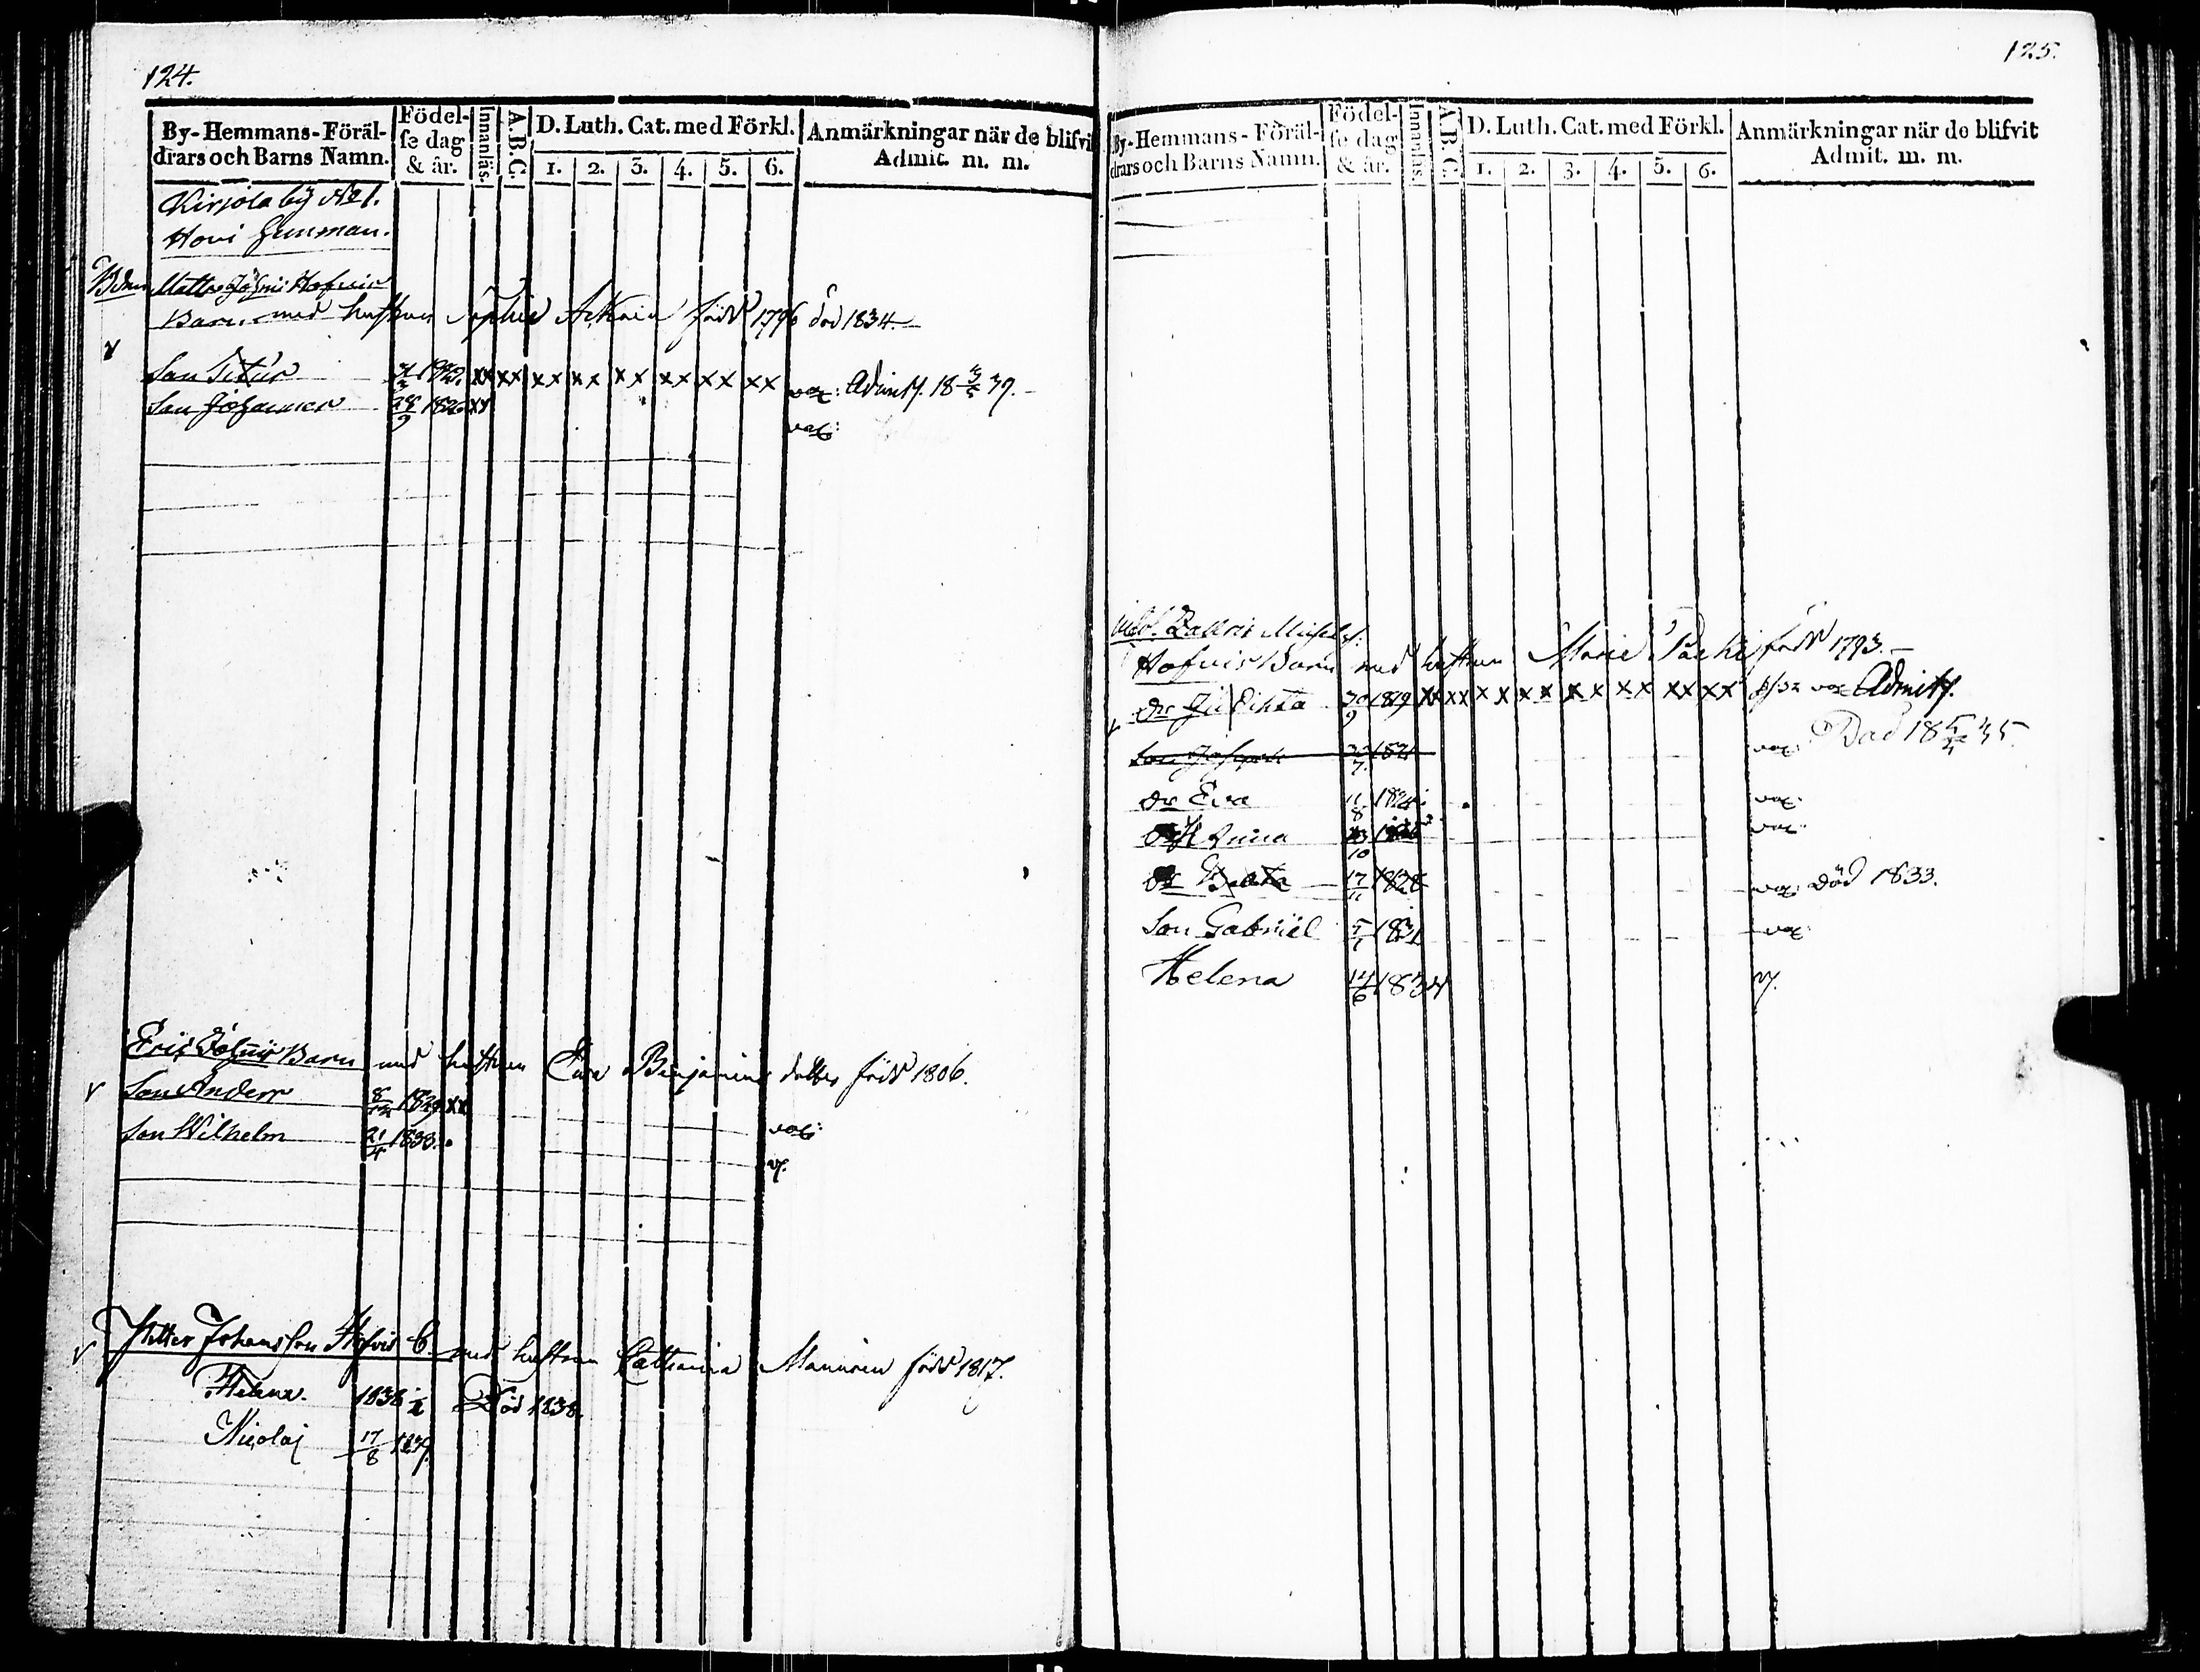 124.
By-Hemmans-Föräl-
drars och Barns Namn.
Födel-
se dag
& år.
Innanläs.
A.B.C.
D. Luth. Cat. med Förkl.
1. 2. 3. 4. 5. 6.
Anmärkningar når de blifvit
Admit. m. m.
Kirjola by No 1.
Hovi
Matts Johans Hofvis
Barn med hustrun Sophia född 1796 död 1834.
Son xx xx xx xx xx xx xx xx vac: Admitt. 18 3/5 37.
Son Johannes 28/9 1826 xx vac:
Eric Johans Barn med hustrun Eva Benjamins dotter född 1806.
Son Anders 8/12 1829 xx vac:
Son Wilhelm 21/4 1833. v.
Petter Johansson Hofvis B. med hustrun Catharina Manninen född 1817.
Helena. 1838 Död 1838.
Nicolaj 17/8 1839.
125.
By-Hemmans-Föräl-
drars och Barns Namn.
Födel-
se dag
& år.
Innanläs.
A.B.C.
D. Luth. Cat. med Förkl.
1. 2. 3. 4. 5. 6.
Anmärkningar når de blifvit
Admit. m. m.
Michels:
Hofvis Barn med hustrun Maria född 1793.
Dr 30/9 1819 xx xx xx xx xx xx xx xx vac Admitt.
Son Joseph 1821 vac: Död 18 35.
Dr Eva 11/8 vac:
Anna vac:
Dr Beata 17/11 1828 vac: Död 1833.
Son Gabriel 5/1 1831 vac:
Helena 14/6 1834 v.